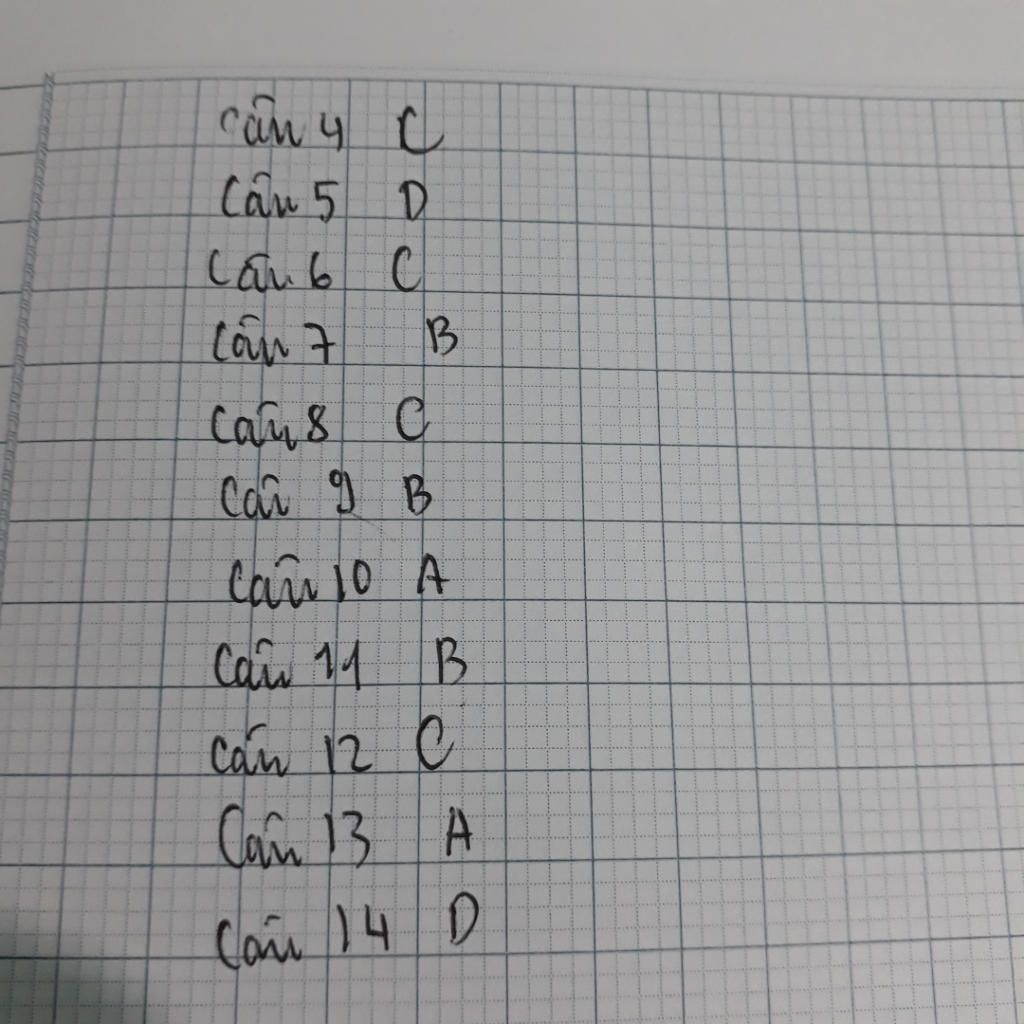 Câu 4 C
Câu 5 D
Câu 6 C
Câu 7 B
Câu 8 C
Câu 9 B
Câu 10 A
Câu 11 B
Câu 12 C
Câu 13 A
Câu 14 D